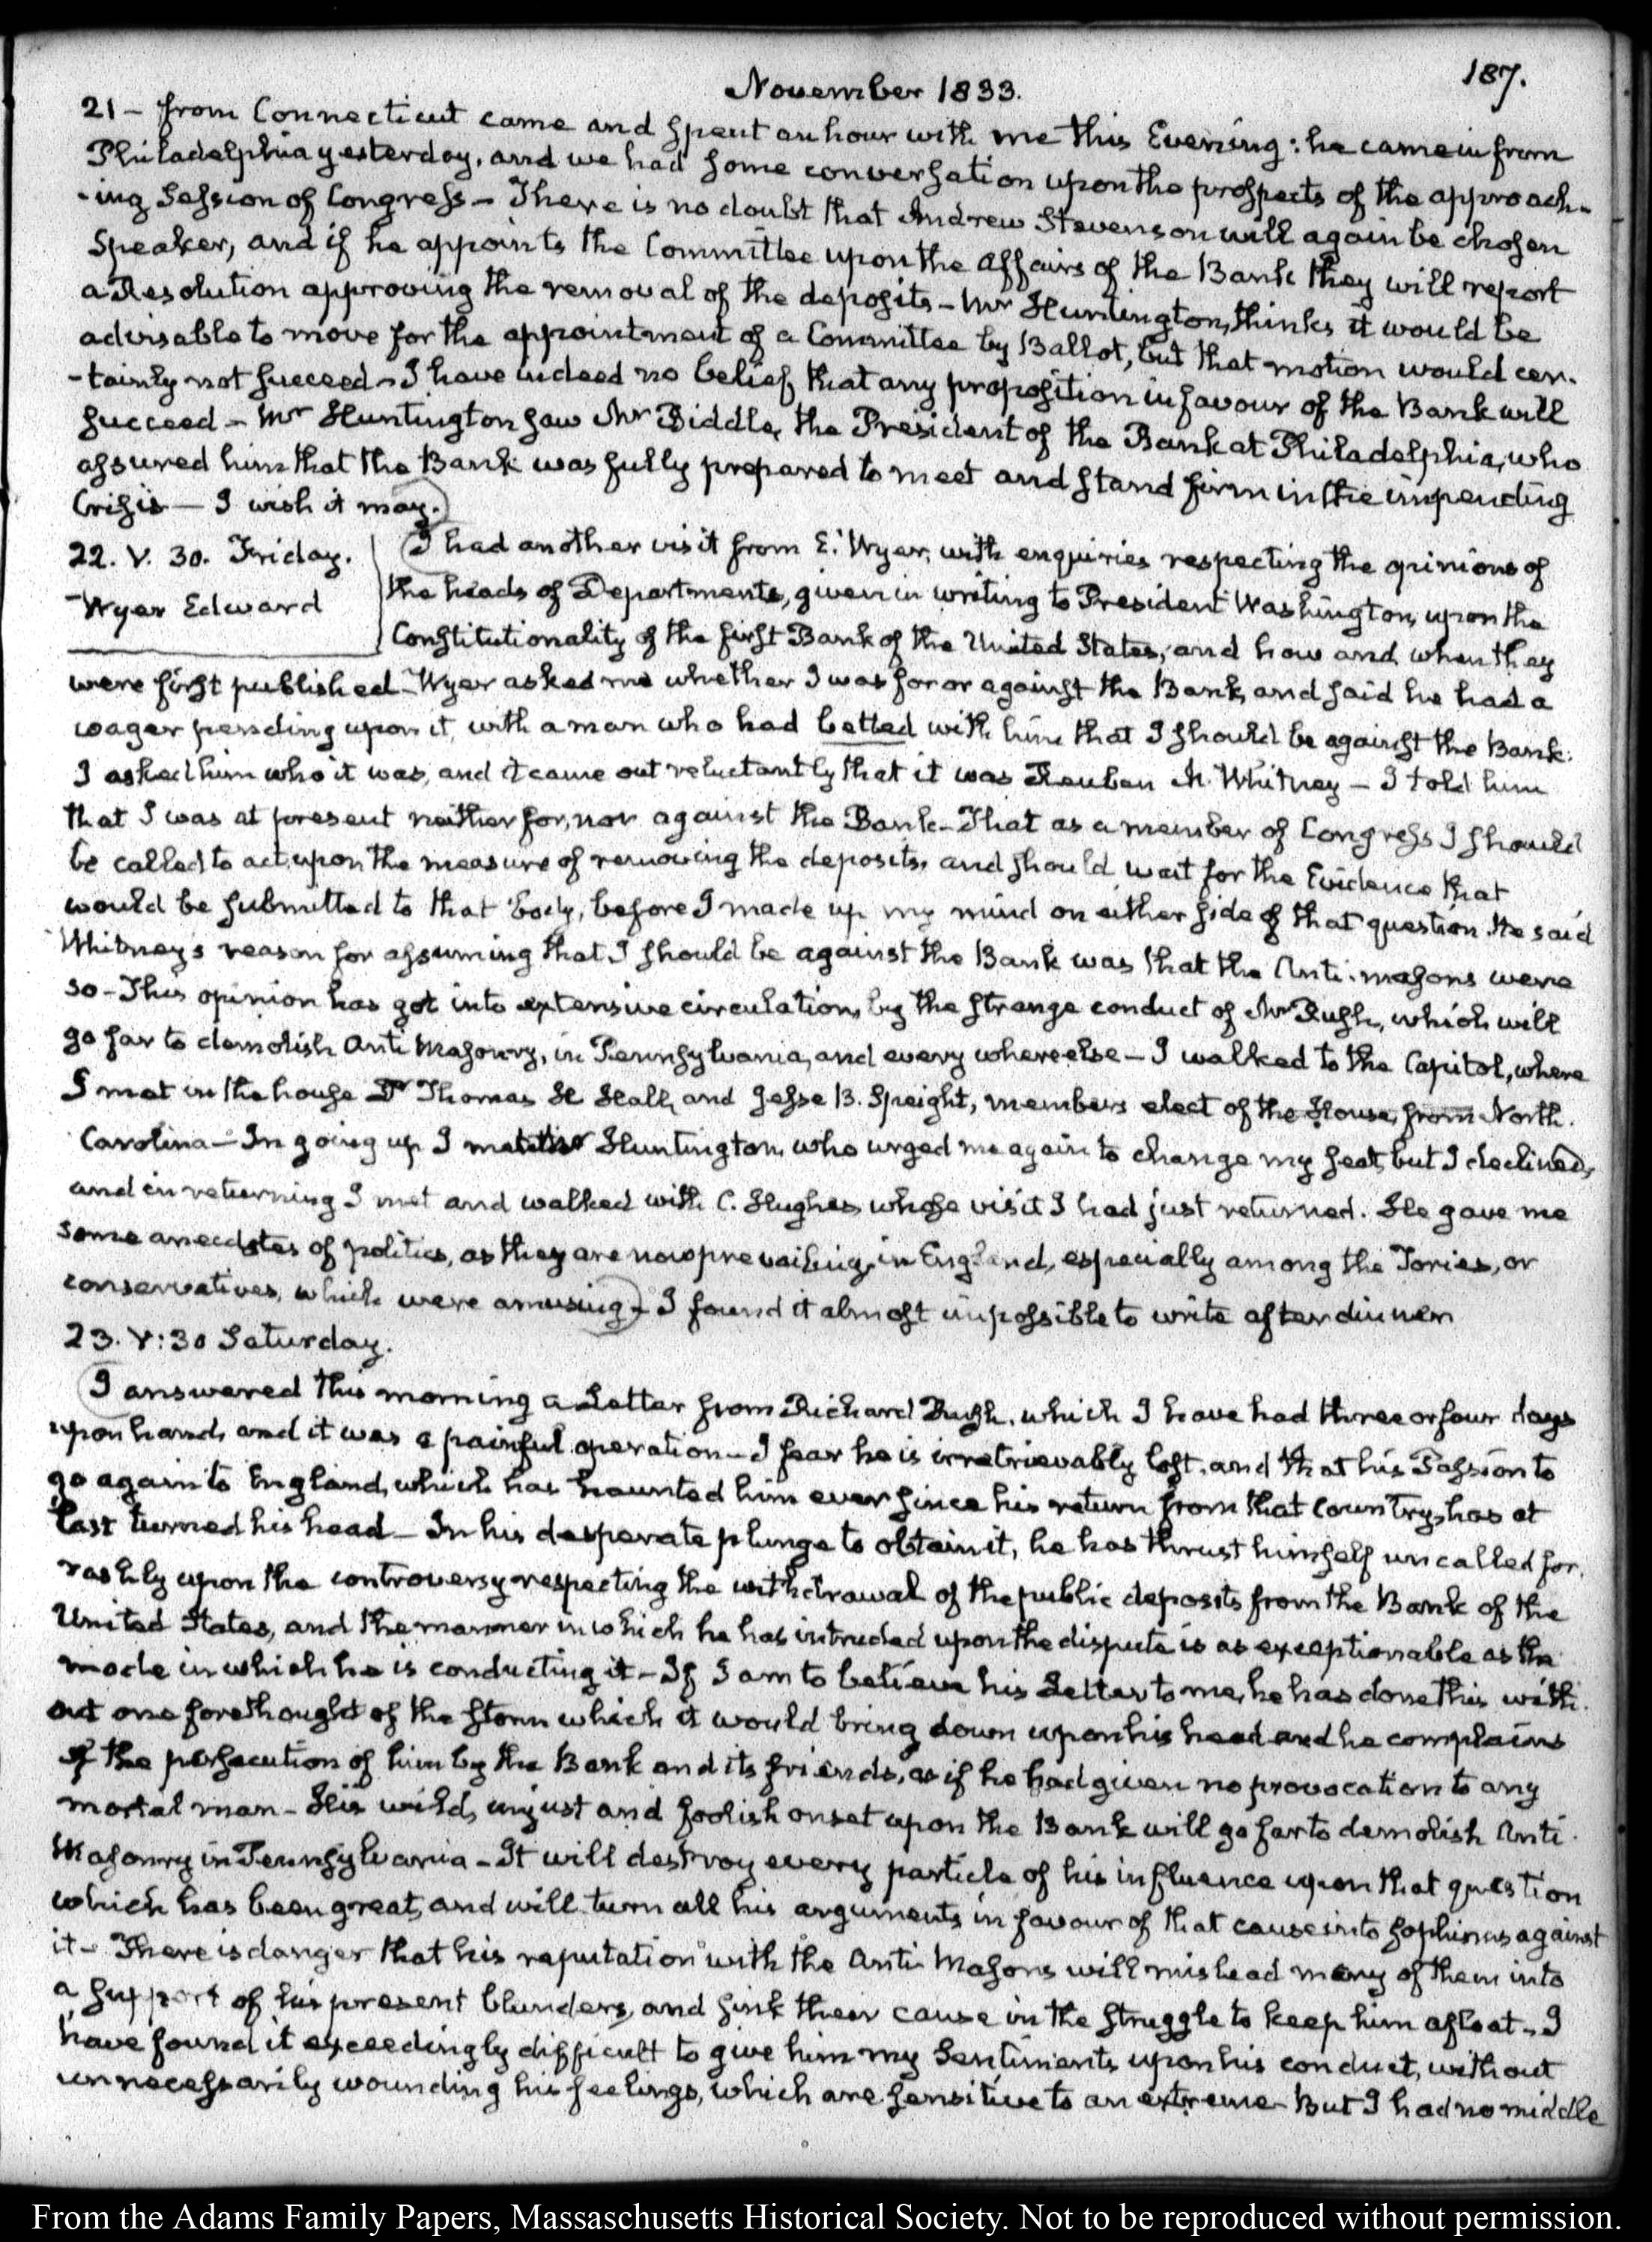 187.
November 1833.
21 - from Connecticut came and spent an hour with me this Evening: he came in from
Philadelphia yesterday, and we had some conversation upon the prospects of the approach-
-ing Session of Congress - There is no doubt that Andrew Stevenson will again be chosen
Speaker, and if he appoints the Committee upon the affairs of the Bank they will report
a Resolution approving the removal of the deposits - Mr Huntington, thinks it would be
advisable to move for the appointment of a Committee by Ballot, but that motion would cer-
-tainly not succeed - I have indeed no belief that any proposition in favour of the Bank will
succeed - Mr Huntington saw Mr Biddle, the President of the Bank at Philadelphia, who
assured him that the Bank was fully prepared to meet and stand firm in the impending
Crisis — I wish it may.
22. V. 30. Friday.
Wyer Edward
I had another visit from E. Wyer, with enquiries respecting the opinions of
the heads of Departments, given in writing to President Washington, upon the
Constitutionality of the first Bank of the United States, and how and when they
were first published - Wyer asked me whether I was for or against the Bank, and said he had a
wager pending upon it, with a man who had betted with him that I should be against the Bank:
I asked him who it was, and it came out reluctantly that it was Reuben M. Whitney - I told him
that I was at present neither for, nor against the Bank - That as a member of Congress I should
be called to act upon the measure of removing the deposits, and should wait for the Evidence that
would be submitted to that body, before I made up my mind on either side of that question. He said
Whitney's reason for assuming that I should be against the Bank was that the Anti-masons were
so - This opinion has got into extensive circulation, by the strange conduct of Mr Rush, which will
go far to demolish Anti Masonry, in Pennsylvania, and every where else - I walked to the Capitol, where
I met in the house Dr Thomas H Hall, and Jesse B. Speight, members elect of the House, from North.
Carolina - In going up I met Mr Huntington, who urged me again to change my seat, but I declined,
and in returning I met and walked with C. Hughes whose visit I had just returned. He gave me
some anecdotes of politics, as they are now prevailing, in England, especially among the Tories, or
conservatives, which were amusing - I found it almost impossible to write after dinner
23. V:30 Saturday.
I answered this morning a Letter from Richard Rush, which I have had three or four days
upon hand, and it was a painful operation - I fear he is irretrievably lost, and that his Passion to
go again to England, which has haunted him ever since his return from that Country, has at
last turned his head - In his desperate plunge to obtain it, he has thrust himself uncalled for,
rashly upon the controversy respecting the withdrawal of the public deposits from the Bank of the
United States, and the manner in which he has intruded upon the dispute is as exceptionable as the
mode in which he is conducting it - If I am to believe his Letter to me, he has done this with-
out one forethought of the storm which it would bring down upon his head and he complains
of the persecution of him by the Bank and its friends, as if he had given no provocation to any
mortal man - His wild, unjust and foolish onset upon the Bank will go far to demolish Anti-
Masonry in Pennsylvania - It will destroy every particle of his influence upon that question
which has been great, and will turn all his arguments in favour of that cause into sophisms against
it - There is danger that his reputation with the Anti Masons will mislead many of them into
a support of his present blunders, and sink their cause in the struggle to keep him afloat - I
have found it exceedingly difficult to give him my Sentiments upon his conduct, without
unnecessarily wounding his feelings, which are sensitive to an extreme - But I had no middle
From the Adams Family Papers, Massachusetts Historical Society. Not to be reproduced without permission.